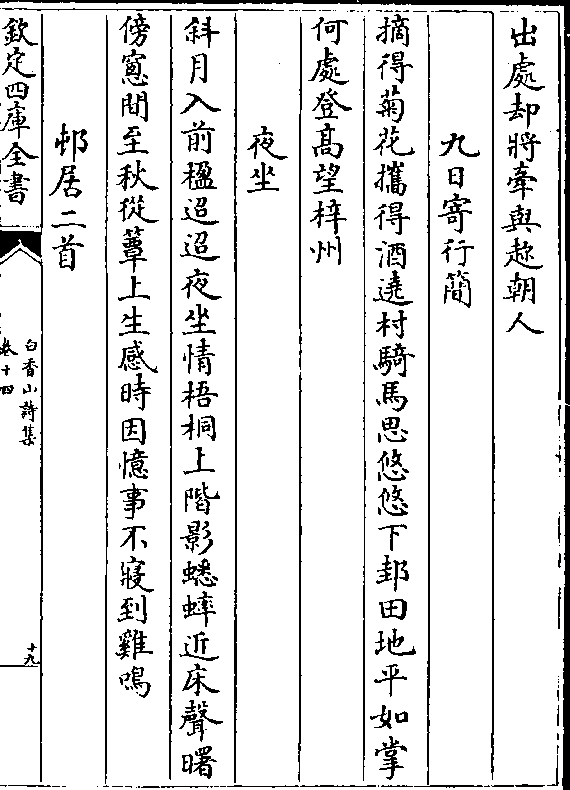 出處却將牽與趂朝人
九日寄行簡
摘得菊花攜得酒遶村騎馬思悠悠下邽田地平如掌
何處登髙望梓州
夜坐
斜月入前楹迢迢夜坐情梧桐上階影蟋蟀近床聲曙
傍窻間至秋從簟上生感時因憶事不寢到雞鳴
邨居二首
欽定四庫全書
白香山詩集
卷十四
十九